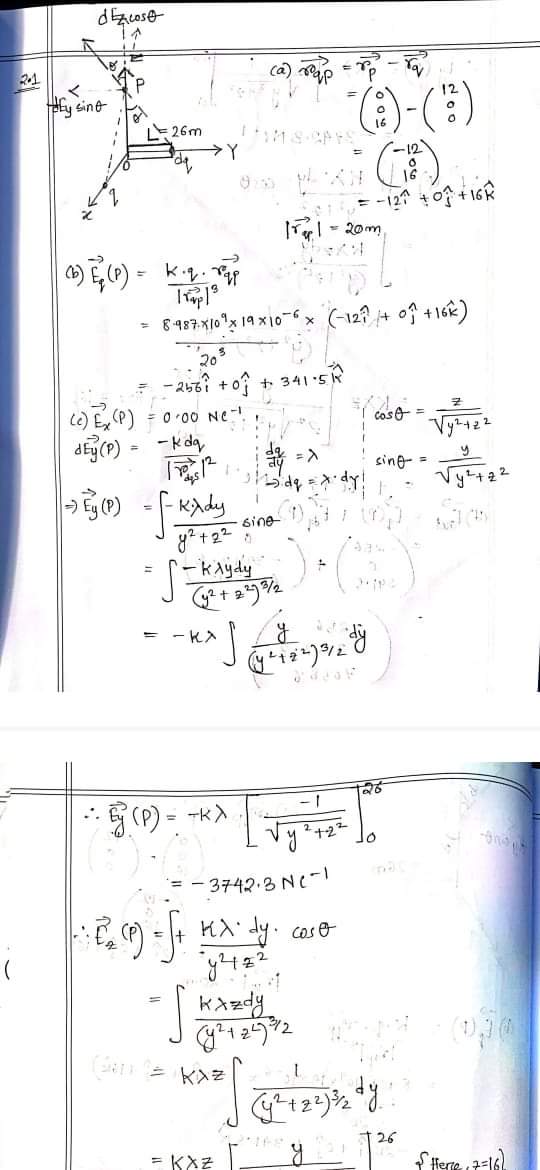 dEz cosθ
2.1
z
θ
P
dEy sinθ
θ
L = 26m
Y
O
dq
q
x
(a) r⃗qp = r⃗p - r⃗q
= (0 0 16) - (12 0 0)
= (-12 0 16)
= -12î + 0ĵ + 16k̂
|r⃗qp| = 20m
(b) E⃗q(P) = k.q. r⃗qp / |r⃗qp|³
= 8.987×10⁹ × 19×10⁻⁶ × (-12î + 0ĵ + 16k̂) / 20³
= -256î + 0ĵ + 341.5 k̂
(c) E⃗x(P) = 0.00 NC⁻¹
cosθ = z / √y²+z²
dE⃗y(P) = -kdq / |r⃗|²
dq/dy = λ
→ dq = λ.dy
sinθ = y / √y²+z²
⇒ E⃗y(P) = ∫ -kλdy / y²+z² sinθ
= ∫ -kλydy / (y²+z²)^3/2
= -kλ ∫ y / (y²+z²)^3/2 dy
∴ E⃗y(P) = -kλ [ -1 / √y²+z² ]₀²⁶
= -3742.3 NC⁻¹
∴ E⃗z(P) = ∫+ kλ.dy. cosθ / y²+z²
= ∫ kλzdy / (y²+z²)^3/2
= kλz ∫ 1 / (y²+z²)^3/2 dy
= kλz [ y ]26 {Here, z=16}